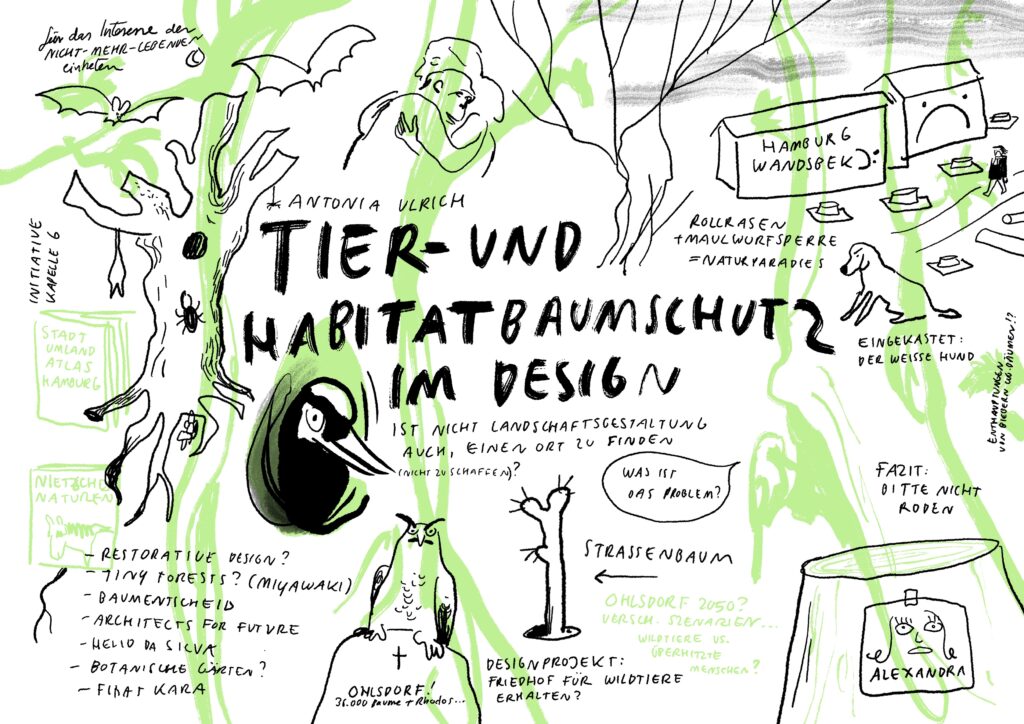 für das Interesse der
NICHT-MEHR-LEBENDEN
eintreten
* ANTONIA ULRICH
TIER- UND
HABITATBAUMSCHUTZ
IM DESIGN
IST NICHT LANDSCHAFTSGESTALTUNG
AUCH, EINEN ORT ZU FINDEN
(NICHT ZU SCHAFFEN)?
HAMBURG
WANDSBEK
ROLLRASEN
+MAULWURFSPERRE
=NATURPARADIES
EINGEKASTET:
DER WEISSE HUND
ENTHAUPTUNGEN
VON BIEDERN
INITIATIVE
KAPELLE 6
STADT
UMLAND
ATLAS
HAMBURG
NIETZSCHE
NATUREN
- RESTORATIVE DESIGN?
- TINY FORESTS? (MIYAWAKI)
- BAUMENTSCHEID
- ARCHITECTS FOR FUTURE
- HELIO DA SILVA
- BOTANISCHE GÄRTEN?
- FIRAT KARA
OHLSDORF!
36.000 Bäume + Rhodos...
WAS IST
DAS PROBLEM?
STRASSENBAUM
DESIGNPROJEKT:
FRIEDHOF FÜR WILDTIERE
ERHALTEN?
OHLSDORF 2050?
VERSCH. SZENARIEN...
WILDTIERE VS.
ÜBERHITZTE
MENSCHEN?
FAZIT:
BITTE NICHT
RODEN
ALEXANDRA